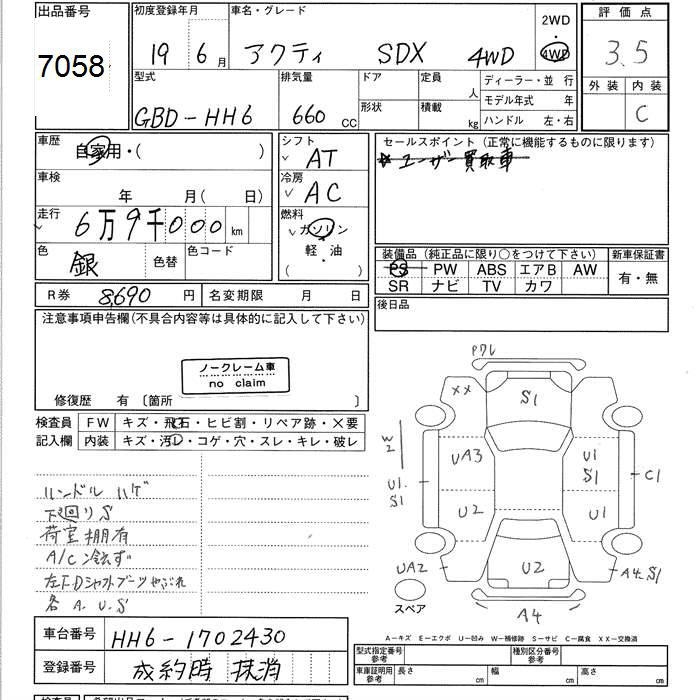 出品番号 初度登録年月 車名・グレード 2WD 評価点
7058 19年 6月 アクティ SDX 4WD ・ 4WD 3.5
型式 排気量 ドア 定員 人 ディーラー・並行 外装 内装
GBD-HH6 660 CC 形状 積載 kg モデル年式 年 C
ハンドル 左・右
車歴 自家用・( ) シフト AT セールスポイント (正常に機能するものに限ります)
ユーザー買取車
車検 年 月( 日) 冷房 AC
走行 6万9千000 km 燃料 ガソリン
色 銀 色替 色コード 軽・油
( )
装備品 (純正品に限り○をつけて下さい) 新車保証書
PS PW ABS エアB AW 有・無
SR ナビ TV カワ
R券 8,690 円 名変期限 月 日 後日品
注意事項申告欄(不具合内容等は具体的に記入して下さい)
ノークレーム車
no claim
修復歴 有 〔箇所 〕
検査員 FW キズ・飛石・ヒビ割・リペア跡・×要
記入欄 内装 キズ・汚し・コゲ・穴・スレ・キレ・破レ
ハンドル ハゲ
下廻りS
荷室棚有
A/C冷えず
左F.Dシャフトブーツやぶれ
各A.U.S
P割レ
XX S1
W2 UA3 U1 S1 C1
U1. S1 U2 U1
UA2 U2 A4.S1
スペア A4
A-キズ E-エクボ U-凹み W-補修跡 S-サビ C-腐食 XX-交換済
車台番号 HH6-1702430
登録番号 成約時 抹消
型式指定番号 参考 種別区分番号 参考
車庫証明用 参考 長さ cm 幅 cm 高さ cm